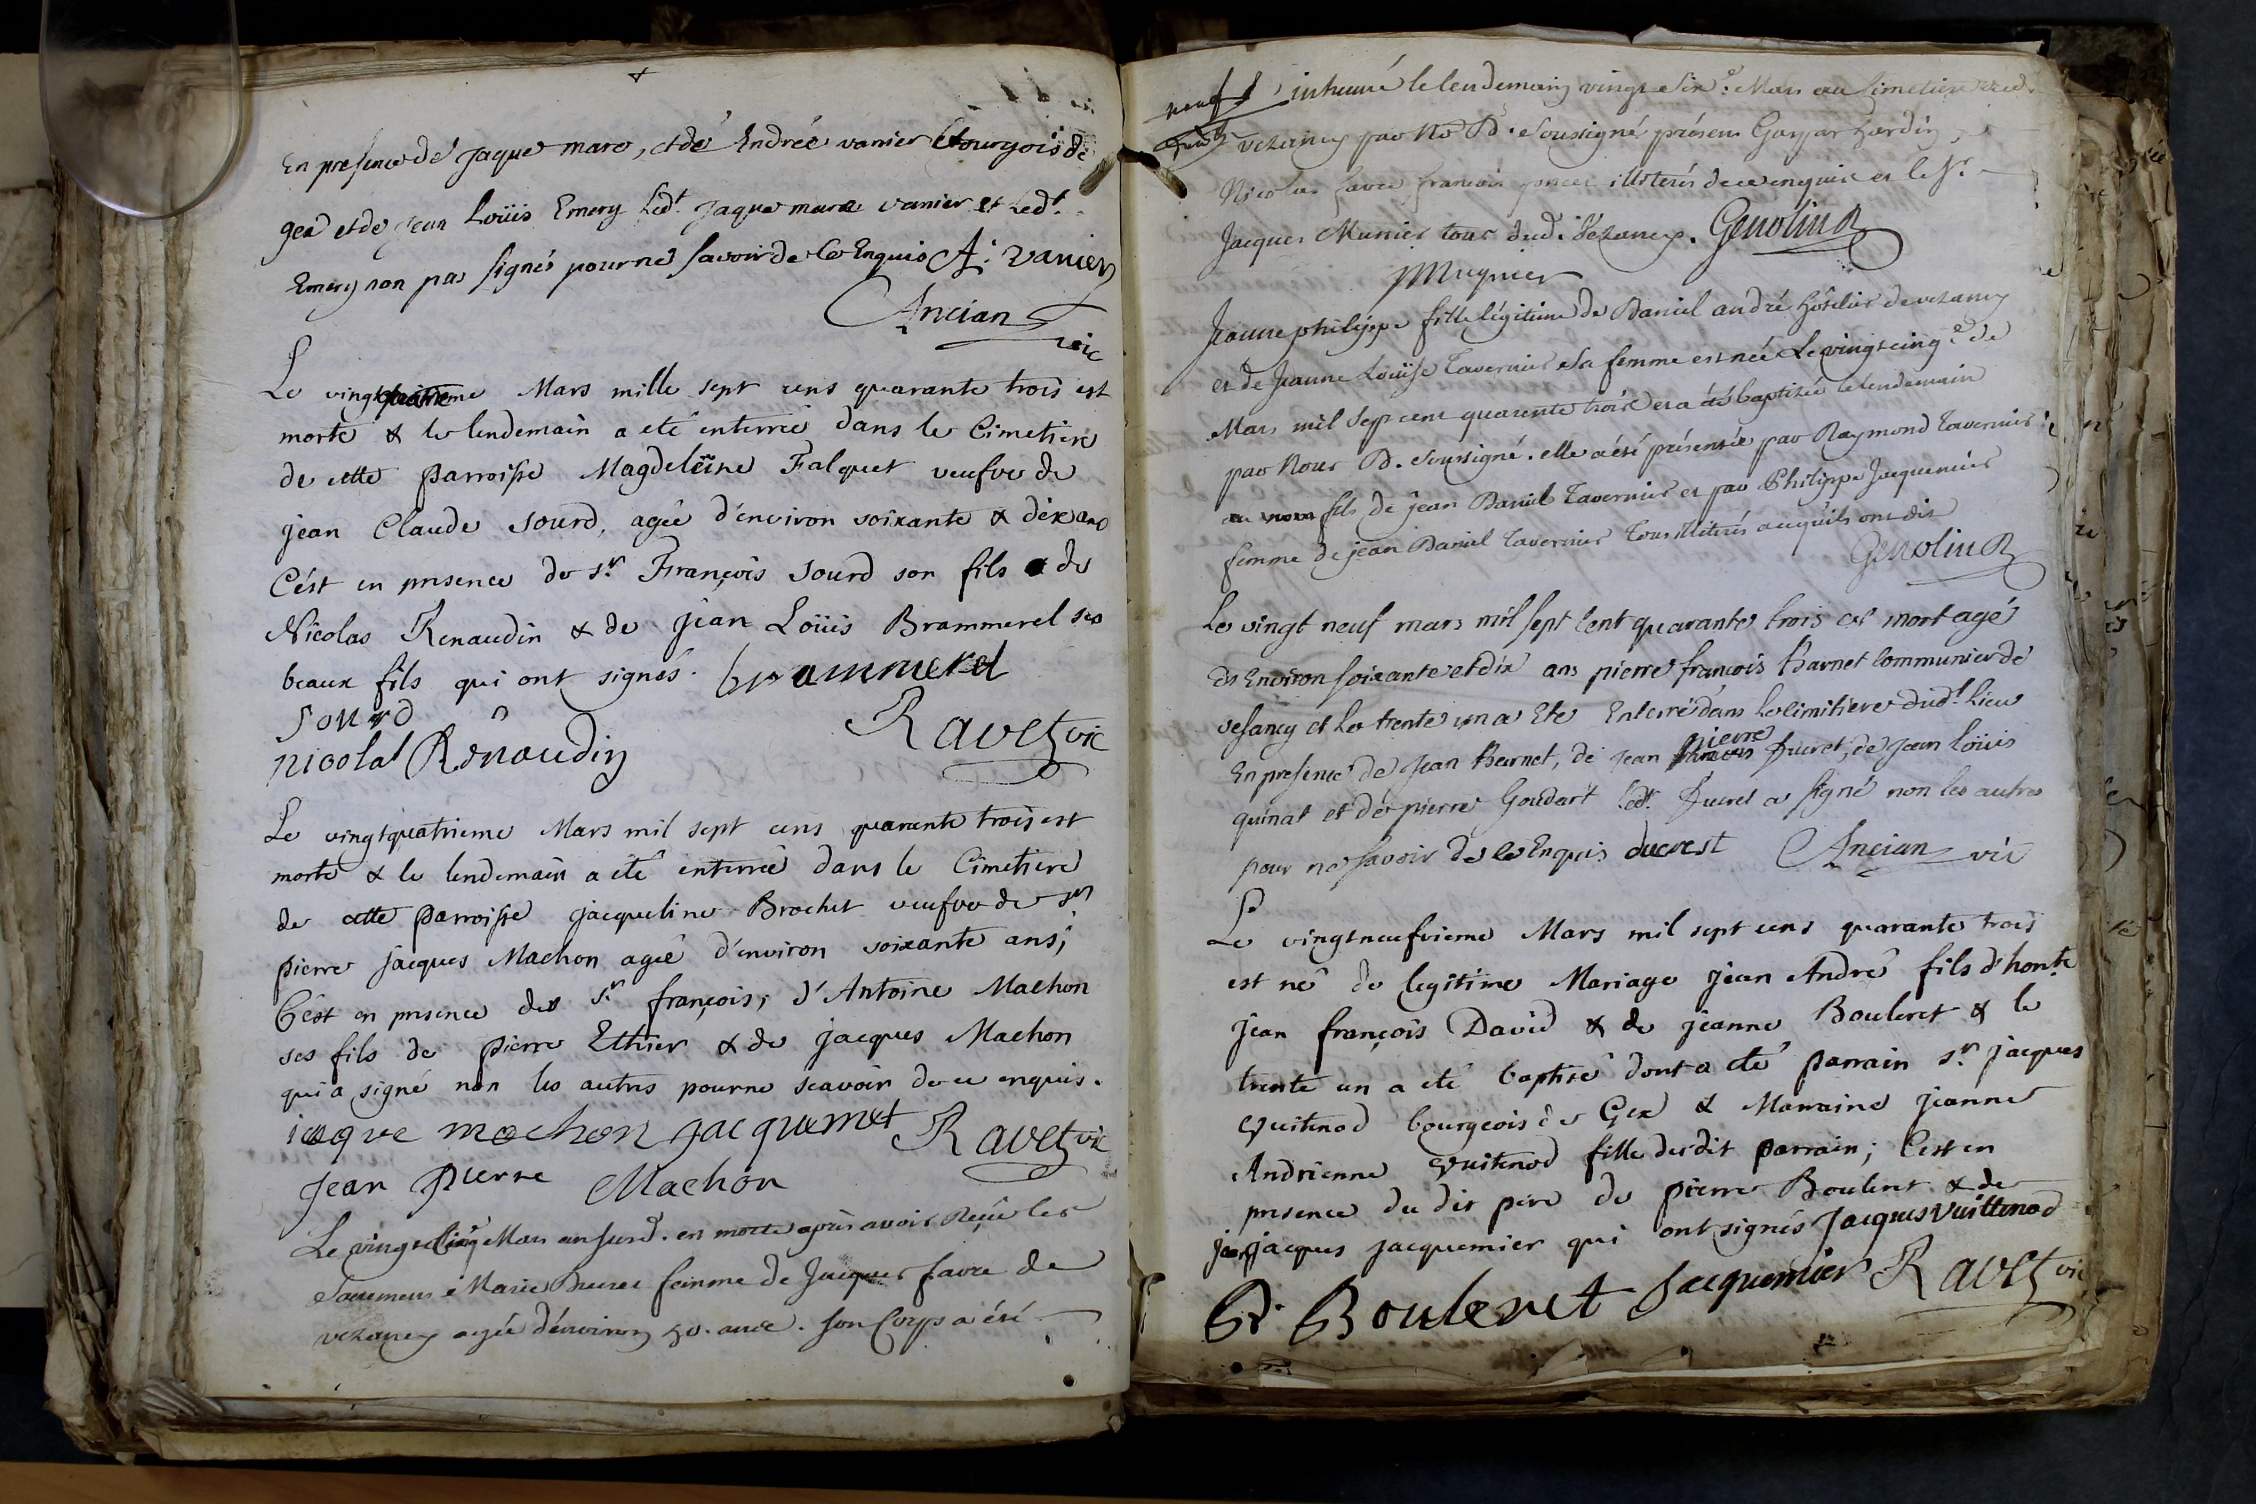 En presence de jaque marc, et de Andrée vanier bourgois de
gex et de jean Loüis Emery Led.t jaque marc vanier et Led.t
Emery non pas signés pour ne savoir de ce Enquis A. vanier
Ancian vic
Le vingtquatrieme Mars mille sept cens quarante trois est
morte & le lendemain a eté enterrée dans le Cimetiere
de cette parroisse Magdeleine Falquet veufve de
jean Claude Sourd, agée d'environ soixante & dix ans
C'ést en presence de s.r François Sourd son fils & de
Nicolas Renaudin & de jean Loüis Brammerel ses
beaux fils qui ont signés. brammerel
Sourd
nicolat Renaudin Ravet vic
Le vingtquatrieme Mars mil sept cens quarante trois est
morte & le lendemain a eté enterrée dans le Cimetiere
de cette parroisse jacqueline Brochet veufve de s.r
pierre jacques Machon agée d'environ soixante ans;
C'ést en presence des s.r françois, d'Antoine Machon
ses fils de pierre Ethier & de jacques Machon
qui a signé non les autres pour ne scavoir de ce enquis.
jaque mochon jacquemet Ravet vic
jean pierre Machon
Le vingt cinq Mars an susd. est morte après avoir Reçu les
Sacremens Marie Ducret femme de Jacques favre de
vezancy agée d'environ 50. ans. son Corps a été
neuf inhumé le lendemain vingt six.e Mars au Cimetiere dud.
vezancy par No. P. soussigné présens Gaspar hardin,
Nicolas favre françois poncet illiterés de ce enquis et le S.r
Jacques Munier tous dud. Vezancy. Genolin
JMugnier
Jeanne philippe fille légitime de Daniel andré hôtelier de vezancy
et de Jeanne Loüise Tavernier sa femme est née Le vingt cinq.e de
Mars mil sept cent quarente trois et a été baptizée le lendemain
par Nous P. soussigné. elle a été présentée par Raymond Tavernier
fils de jean Daniel Tavernier et par Philippe Jaquemier
femme de jean Daniel Tavernier Tous illiterés a ce qu'ils ont dit
Genolin
Le vingt neuf mars mil sept Cent quarante trois est mort agé
ds Environ soixante et dix ans pierre françois harnet Communier de
vesancy et Le trente un a Eté Enterré dans Le Cimitiere dud.t Lieu
En presence de jean harnet, de jean pierre Ducret, de jean Loüis
quinat et de pierre Goudart Led.t Ducret a signé non les autres
pour ne savoir de ce Enquis ducrest Ancian vic
Le vingtneufvieme Mars mil sept cens quarante trois
est né de legitime Mariage jean André fils d'hon.te
jean françois David & de jeanne Bouleret & le
trente un a eté baptisé dont a eté parrain s.r jacques
Vuitenod bourgeois de Gex & Marraine jeanne
Andrienne Vuitenod fille du dit parrain; C'est en
presence du dit pere de pierre Bouleret & de
jean jacques jacquemier qui ont signés Jacques Vuittenod
P. Bouleret Jacquemier Ravet vic